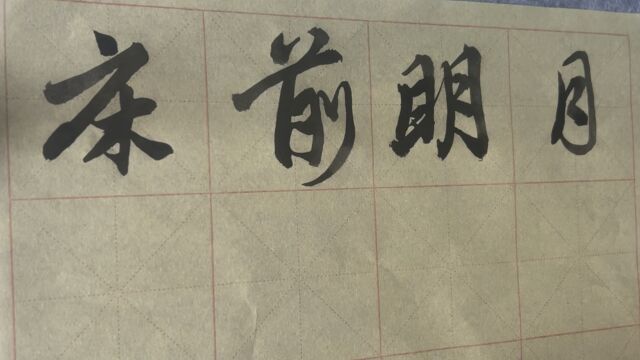 床前明月